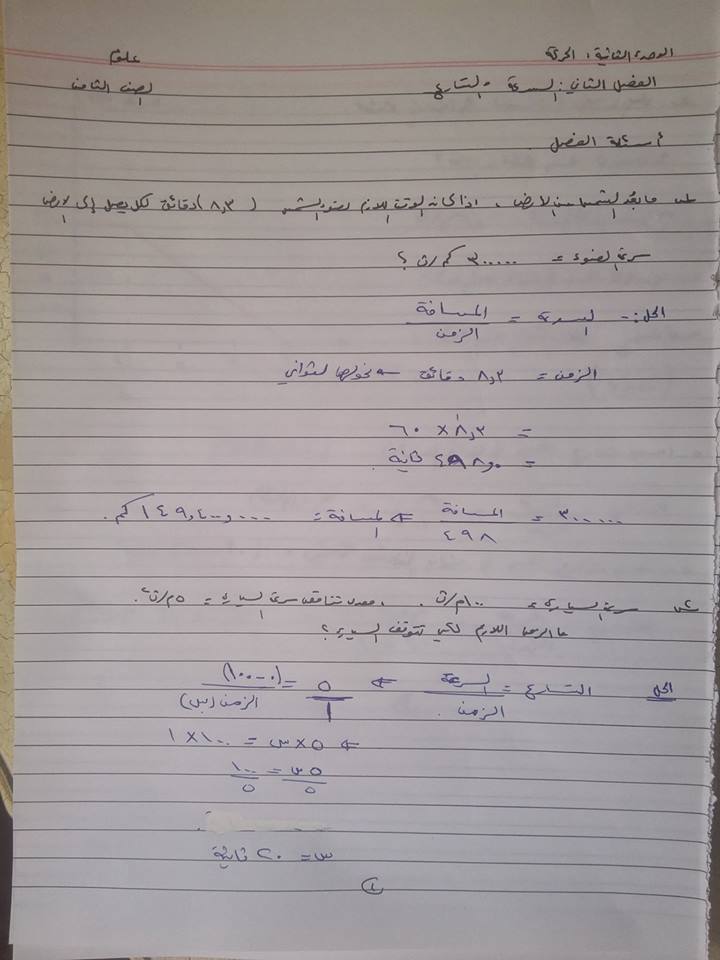 الوحدة الثانية : الحركة علوم
الفصل الثاني : السرعة والتسارع الصف الثامن
أسئلة الفصل
ما بعد الشمس عن الارض ، اذا كانه الوقت اللازم لضوء الشمس ( ٨,٣ ) دقائق لكي يصل إلى الارض
سرعة الضوء = ٣٠٠٠٠٠ كم/ث ؟
الحل :- السرعة = المسافة / الزمن
الزمن = ٨,٣ دقائق ⇐ نحولها لثواني
= ٨,٣ × ٦٠
= ٤٩٨,٠ ثانية .
٣٠٠٠٠٠ = المسافة / ٤٩٨ ⇐ المسافة = ١٤٩,٤٠٠,٠٠٠ كم .
س٢ سرعة السيارة = ١٠٠ م/ث . ، معدل تناقص سرعة السيارة = ٥ م/ث٢ .
ما الزمن اللازم لكي تتوقف السيارة ؟
الحل التسارع = السرعة / الزمن ⇐ ٥ / ١ = (١٠٠-٠) / الزمن (س)
⇐ ٥ × س = ١٠٠ × ١
٥س / ٥ = ١٠٠ / ٥
س = ٢٠ ثانية